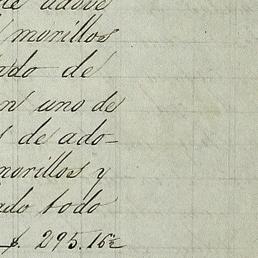 de adove
morillos
ado de
n uno de
s de ado-
morillos y
ado todo
$. 295.16c